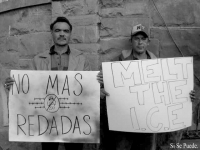 NO MAS
REDADAS
MELT
THE
ICE
Si Se Puede.